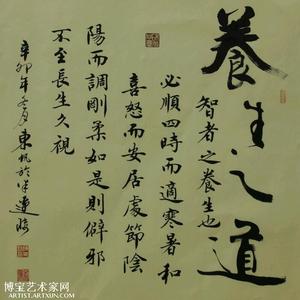 養生之道
智者之養生也
必順四時而適寒暑和
喜怒而安居處節陰
陽而調剛柔如是則僻邪
不至長生久視
辛卯年 東帆於
博宝艺术家网
ARTIST.ARTXUN.COM